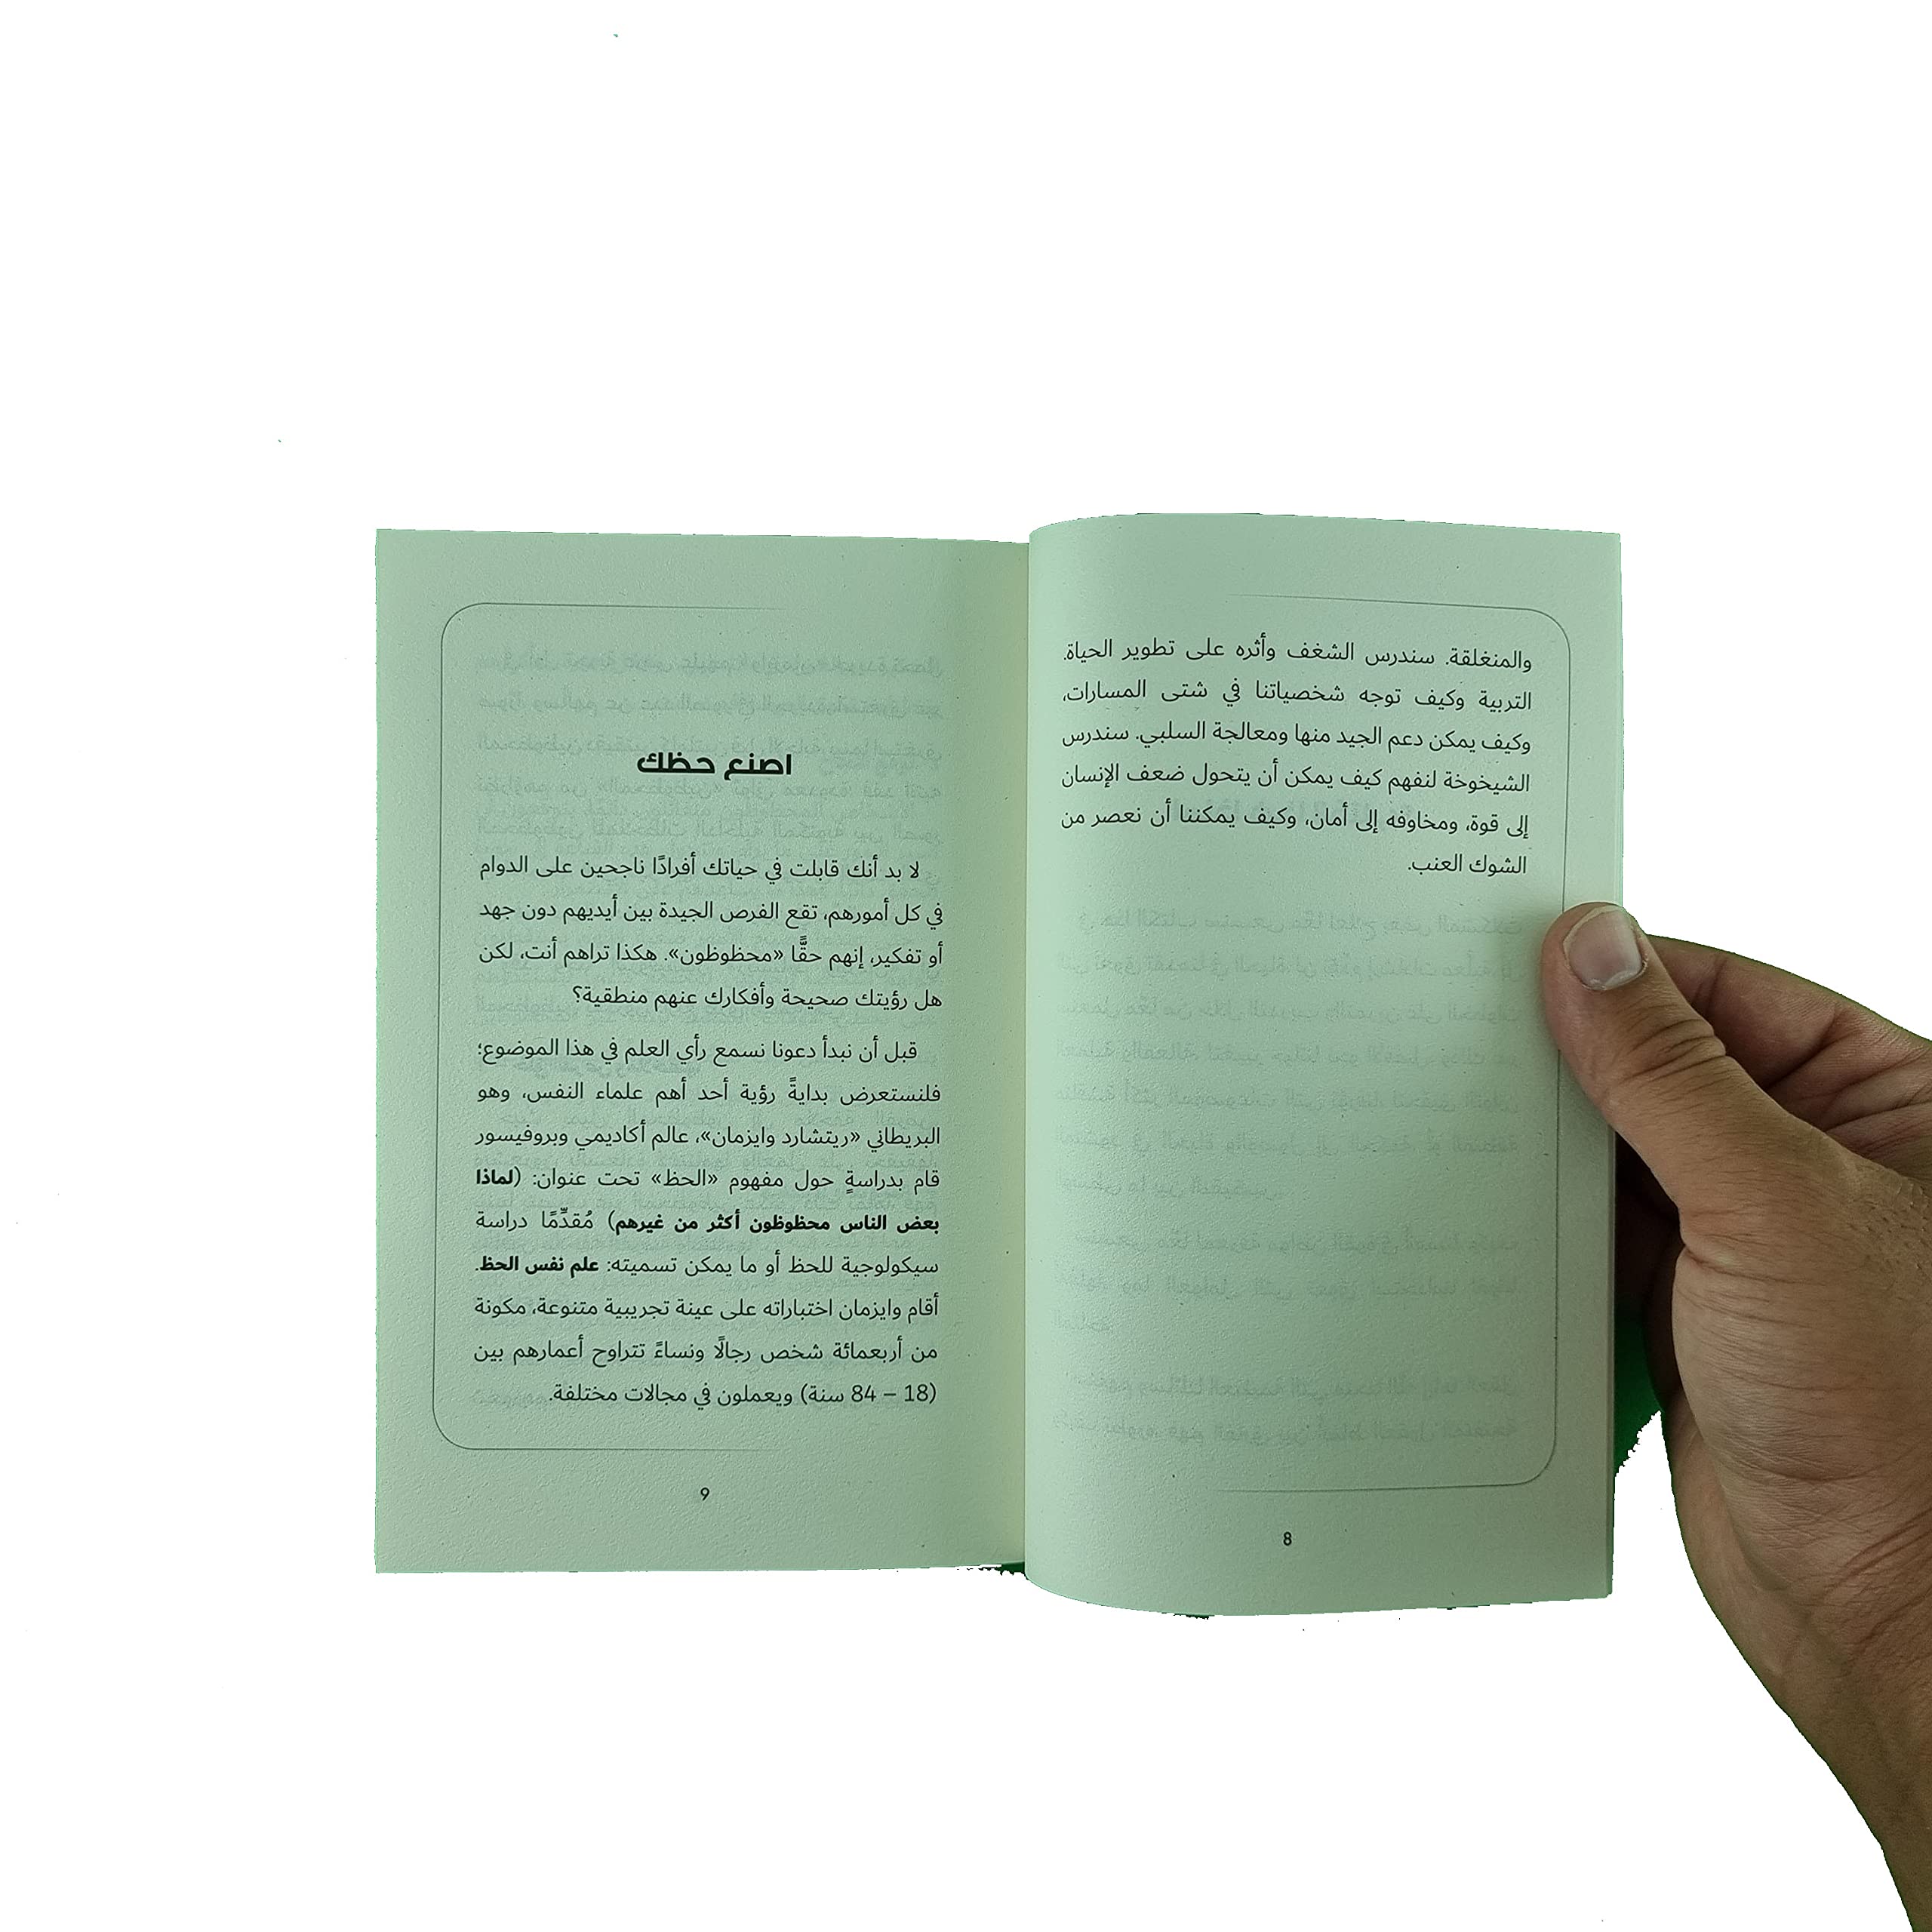 والمنغلقة. سندرس الشغف وأثره على تطوير الحياة.
التربية وكيف توجه شخصياتنا في شتى المسارات،
وكيف يمكن دعم الجيد منها ومعالجة السلبي. سندرس
الشيخوخة لنفهم كيف يمكن أن يتحول ضعف الإنسان
إلى قوة، ومخاوفه إلى أمان، وكيف يمكننا أن نعصر من
الشوك العنب.
8
اصنع حظك
لا بد أنك قابلت في حياتك أفرادًا ناجحين على الدوام
في كل أمورهم، تقع الفرص الجيدة بين أيديهم دون جهد
أو تفكير، إنهم حقًّا «محظوظون». هكذا تراهم أنت، لكن
هل رؤيتك صحيحة وأفكارك عنهم منطقية؟
قبل أن نبدأ دعونا نسمع رأي العلم في هذا الموضوع؛
فلنستعرض بدايةً رؤية أحد أهم علماء النفس، وهو
البريطاني «ريتشارد وايزمان»، عالم أكاديمي وبروفيسور
قام بدراسةٍ حول مفهوم «الحظ» تحت عنوان: (لماذا
بعض الناس محظوظون أكثر من غيرهم) مُقدِّمًا دراسة
سيكولوجية للحظ أو ما يمكن تسميته: علم نفس الحظ.
أقام وايزمان اختباراته على عينة تجريبية متنوعة، مكونة
من أربعمائة شخص رجالًا ونساءً تتراوح أعمارهم بين
(18 – 84 سنة) ويعملون في مجالات مختلفة.
9